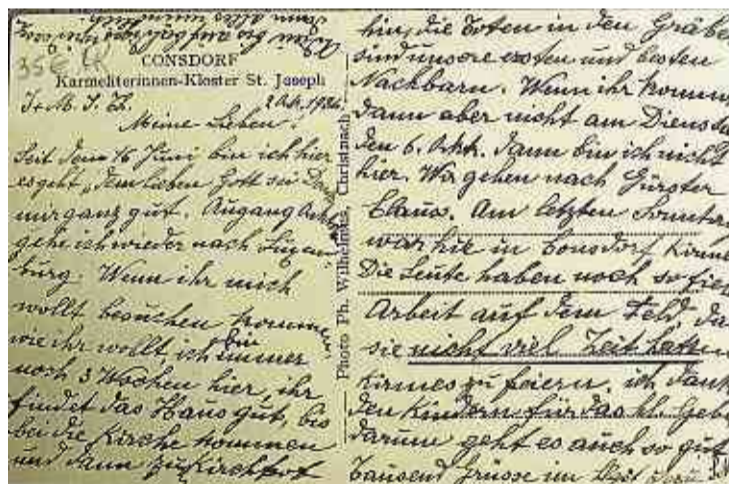 35€
CONSDORF
Karmeliterinnen-Kloster St. Joseph
J. M. J. Th. 2 Okt. 1936.
Meine Lieben!
Seit dem 16 Juni bin ich hier
es geht, dem lieben Gott sei Dank
mir ganz gut. Angang Oktob
gehe ich wieder nach Luxem
burg. Wenn ihr mich
wollt besuchen kommen
wie ihr wollt, ich bin immer
noch 3 Wochen hier, ihr
findet das Haus gut, bis
bei die Kirche kommen
und dann zu Kirchhof
Photo Ph. Wilhelmus, Christnach
hin, die Toten in den Gräber
sind unsere ersten und besten
Nachbarn. Wenn ihr kommt
dann aber nicht am Dienstag
den 6. Okt. dann bin ich nicht
hier. Wir gehen nach
Claus. Am letzten Sonntag
war hie in Consdorf Kirmes
Die Leute haben noch so fiel
Arbeit auf dem Feld, da
sie nicht viel Zeit hatten
Kirmes zu feiern. ich danke
den Kindern für das hl. Gebe
darum geht es auch so gut
Tausend Grüsse im